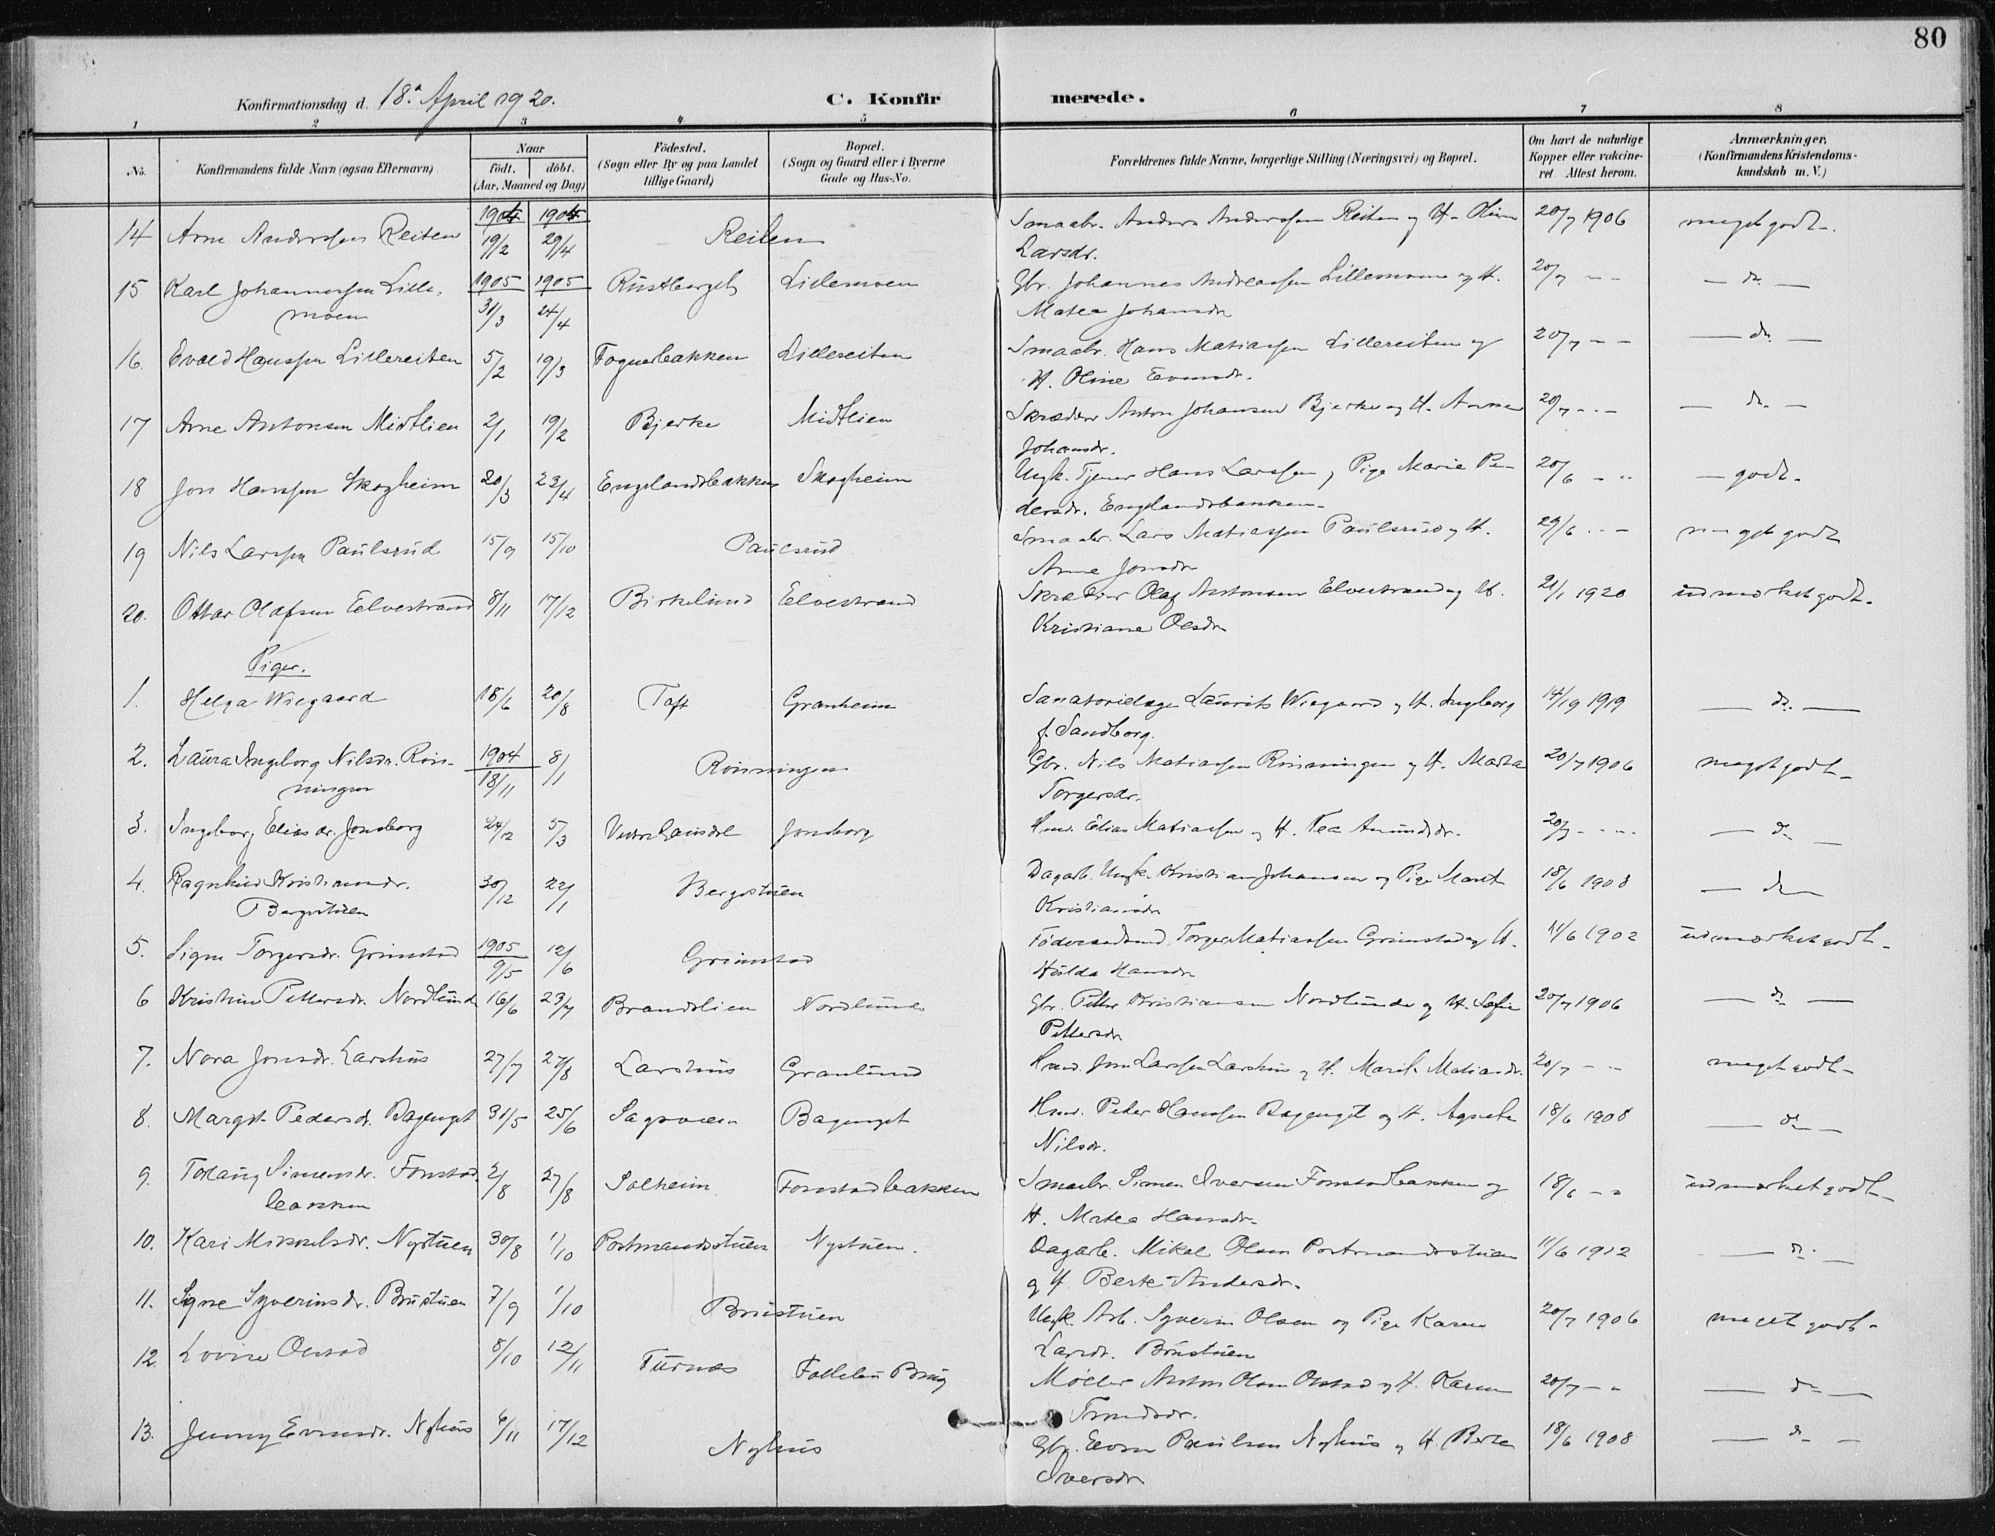 80
Konfirmationsdag d. 18. April 1920.
C. Konfirmerede.
1 2 3 4 5 6 7 8
No.
Konfirmandens fulde Navn (ogsaa Efternavn)
Naar
født. døbt.
(Aar, Maaned og Dag)
Fødested.
(Sogn eller By og paa Landet
tillige Gaard)
Bopæl.
(Sogn og Gaard eller i Byerne
Gade og Hus-No.
Forældrenes fulde Navne, borgerlige Stilling (Næringsvei) og Bopæl.
Om havt de naturlige
Kopper eller vakcine-
ret. Attest herom.
Anmærkninger,
(Konfirmandens Kristendoms-
kundskab m. V.)
1904 1904
14 Arne Anderssen Reiten 19/2 29/4 Reiten Smaabr. Anders Anderssen Reiten og H. Oline 20/7 1906 meget godt.
Larsdr.
1905 1905
15 Karl Johannessen Lille- 31/3 24/4 Rustberget Lillemoen Gbr. Johannes Andreassen Lillemoen og H. 20/7 - - - do -
moen Matea Johansdr
16. Evald Hanssen Lillereiten 5/2 19/3 Fognebakken Lillereiten Smaabr. Hans Matiassen Lillereiten og 20/7 - - - do. -
H. Oline Evensdr.
17 Arne Antonsen Midtlien 2/1 19/2 Bjerke Midtlien Skrædder Anton Johansen Bjerke og H. Anne 20/7 - - - do. -
Johansdr.
18 Jon Hanssen Skogheim 20/3 23/4 Englandsbakken Skogheim Ungk. Tjener Hans Larssen, Pige Marie Pe- 20/6 - " - godt.
dersdr. Englandsbakken.
19 Nils Larssen Paulsrud 15/9 15/10 Paulsrud Smaabr. Lars Matiassen Paulsrud og H. 29/6 - - meget godt
Anne Jonsdr
20. Ottar Olafsen Elvestrand 8/11 17/12 Birkelund Elvestrand Skrædder Olaf Antonsen Elvestrand og H. 21/1 1920 udmerket godt.
Kristiane Olsdr.
Piger.
1. Helga Wiegaard 18/6 20/8 Toft Granheim Sanatorielæge Laurits Wiegaard og H. Ingeborg 14/19 1919 - do. -
f. Sandborg.
2. Laura Ingeborg Nilsdr. Røn- 1904 18/11 8/1 Rønningen Gbr. Nils Matiassen Rønningen og H. Marta 20/7 1906 meget godt.
ningen Torgersdr.
3. Ingeborg Eliasdr. Jonsborg 24/12 5/3 Jonsborg Hmd. Elias Matiassen og H. Tea Amundsdr. 20/7 - - - do -
4. Ragnhild Kristiansdr. 30/12 22/1 Bergestuen Dagarb. Ungk. Kristian Johansen og Pige Marit 18/6 1908 - do -
Bergestuen Kristiansdr
5. Signe Torgersdr. Grimstad 1905 9/5 12/6 Grimstad Føderaadsmd. Torger Matiassen Grimstad og H. 11/6 1902 udmærket godt.
Hulda Hansdr
6 Kristine Pettersdr. Nordlund 16/6 23/7 Brandslien Nordlund Gbr. Petter Kristiansen Nordlunde og H. Sofie 20/7 1906 - do -
Pettersdr
7. Nora Jonsdr. Larshus 27/7 27/8 Larshus Granlund Hmd. Jon Larssen Larshus og H. Marit Matiasdr. 20/7 - - meget godt.
8. Margit Pedersdr. Bagenget 31/5 25/6 Bagenget Hmd. Peder Hanssen Bagenget og H. Agnete 18/6 1908 - do -
Nilsdr.
9. Simensdr. Fonstad- 2/8 27/8 Solheim Fonstadbakken Smaabr. Simen Iversen Fonstadbakken og 18/6 - - udmerket godt.
bakken H. Matea Hansdr.
10. Kari Mikkelsdr. Nystuen 30/8 1/10 Postmandsstuen Nystuen. Dagarb. Mikel Olsen Postmandsstuen 11/6 1912 - do. -
og H. Berte Andersdr.
11. Signe Syverinsdr. Brustuen 7/9 1/10 Brustuen Ungk. Arb. Syverin Olsen og Pige Karen 20/7 1906 meget godt.
Larsdr. Brustuen
12. Lovise Olstad 8/10 12/11 Turnes Follebu Brug Møller Anton Olsen Olstad og H. Karen 20/7 - - - do -
13. Jenny Evensdr. Nyhus 6/11 17/12 Nyhus Gbr. Even Paulsen Nyhus og H. Berte 18/6 1908 - do -
Iversdr